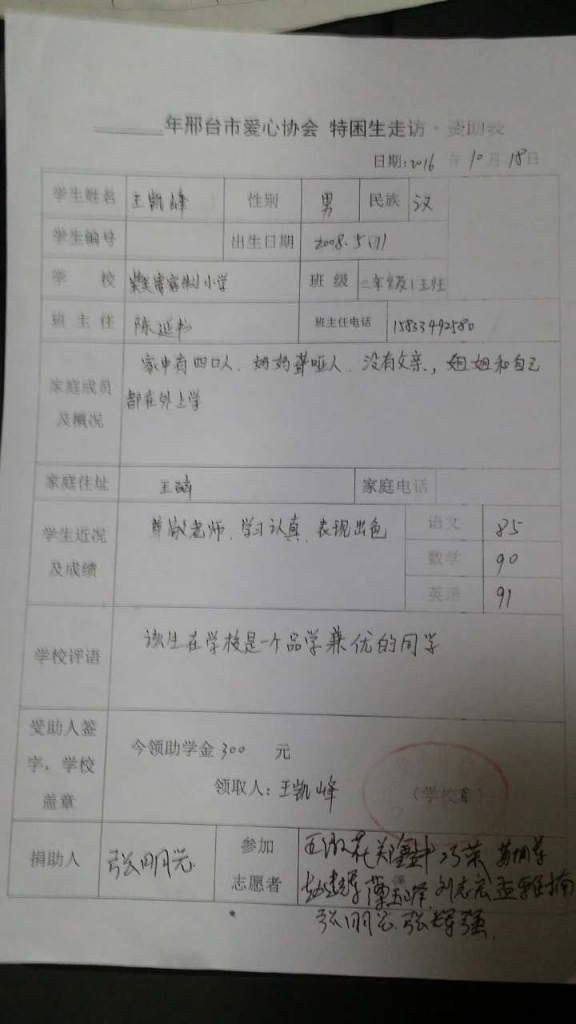 年邢台市爱心协会 特困生走访·资助表
日期:2016 年 10 月 18 日
学生姓名 王凯峰 性别 男 民族 汉
学生编号 出生日期 2008.5
学 校 小学 班 级 二年级1班
班 主 任 陈延书 班主任电话 15833492580
家庭成员及概况 家中有四口人、妈妈聋哑人、没有父亲,姐姐和自己
都在外上学
家庭住址 家庭电话
学生近况及成绩 尊敬老师、学习认真、表现出色 语文 85
数学 90
英语 91
学校评语 该生在学校是一个品学兼优的同学
受助人签字,学校盖章 今领助学金 300 元
领取人:王凯峰 (学校章)
捐助人 张明亮 参加志愿者
刘志宏
张明亮 张辉强